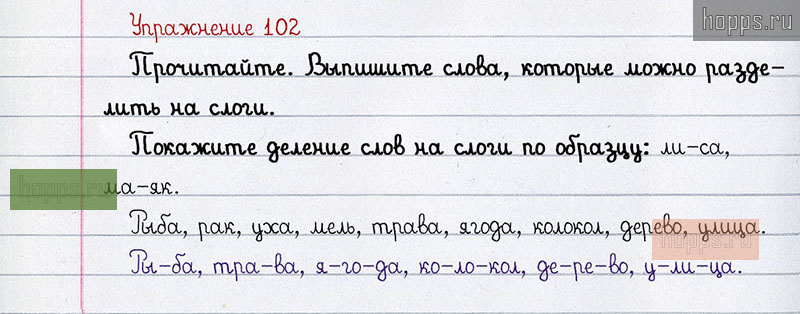 hopps.ru
Упражнение 102
Прочитайте. Выпишите слова, которые можно разде-
лить на слоги.
Покажите деление слов на слоги по образцу: ли-са,
hopps.ru
ма-як.
Рыба, рак, уха, мель, трава, ягода, колокол, дерево, улица.
hopps.ru
Ры-ба, тра-ва, я-го-да, ко-ло-кол, де-ре-во, у-ли-ца.